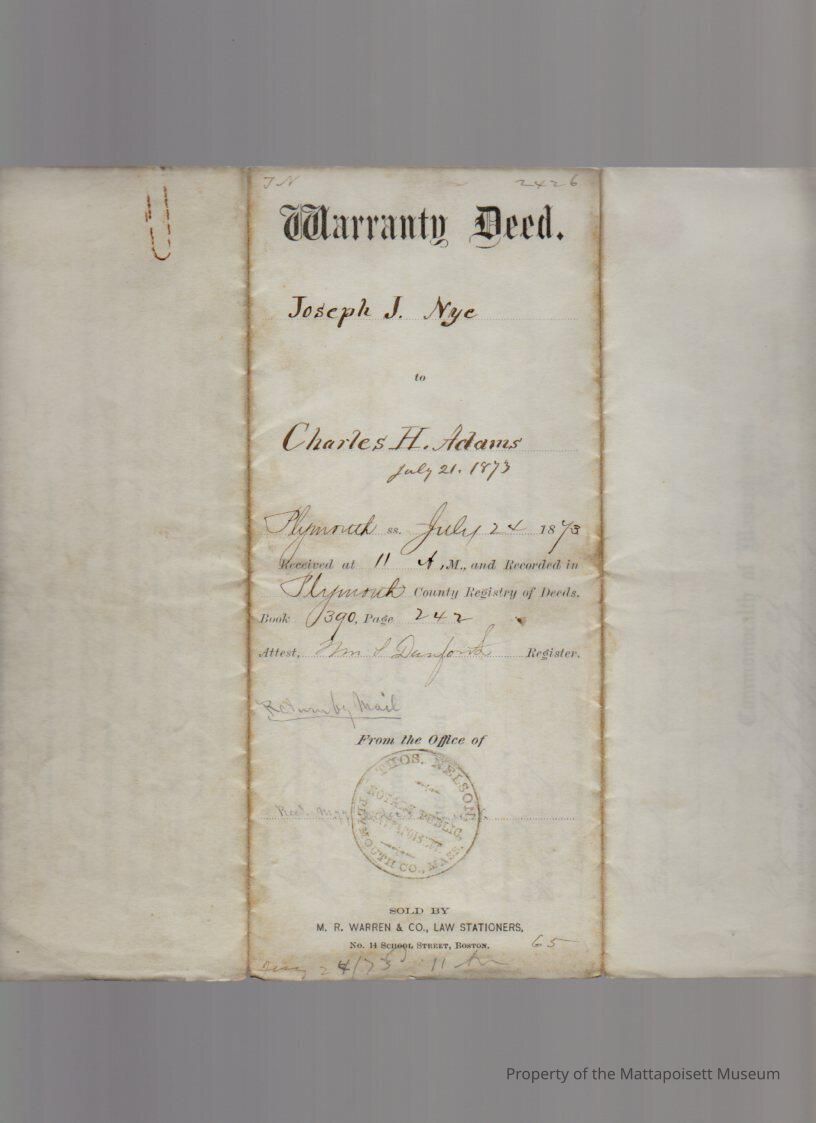 2426
Warranty Deed.
Joseph J. Nye
to
Charles H. Adams
July 21. 1873
Plymouth ss. July 24 1873
Received at 11 A.M., and Recorded in
Plymouth County Registry of Deeds.
Book 390, Page 242
Attest, Wm S Danforth Register.
Return by Mail
From the Office of
THOS. NELSON
NOTARY PUBLIC,
MATTAPOISETT
PLYMOUTH CO., MASS.
SOLD BY
M. R. WARREN & CO., LAW STATIONERS,
No. 14 School Street, Boston.
65
24/73 11
Property of the Mattapoisett Museum